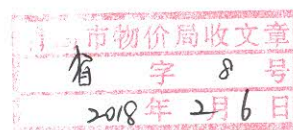 市物价局收文章
省字8号
2018年2月6日